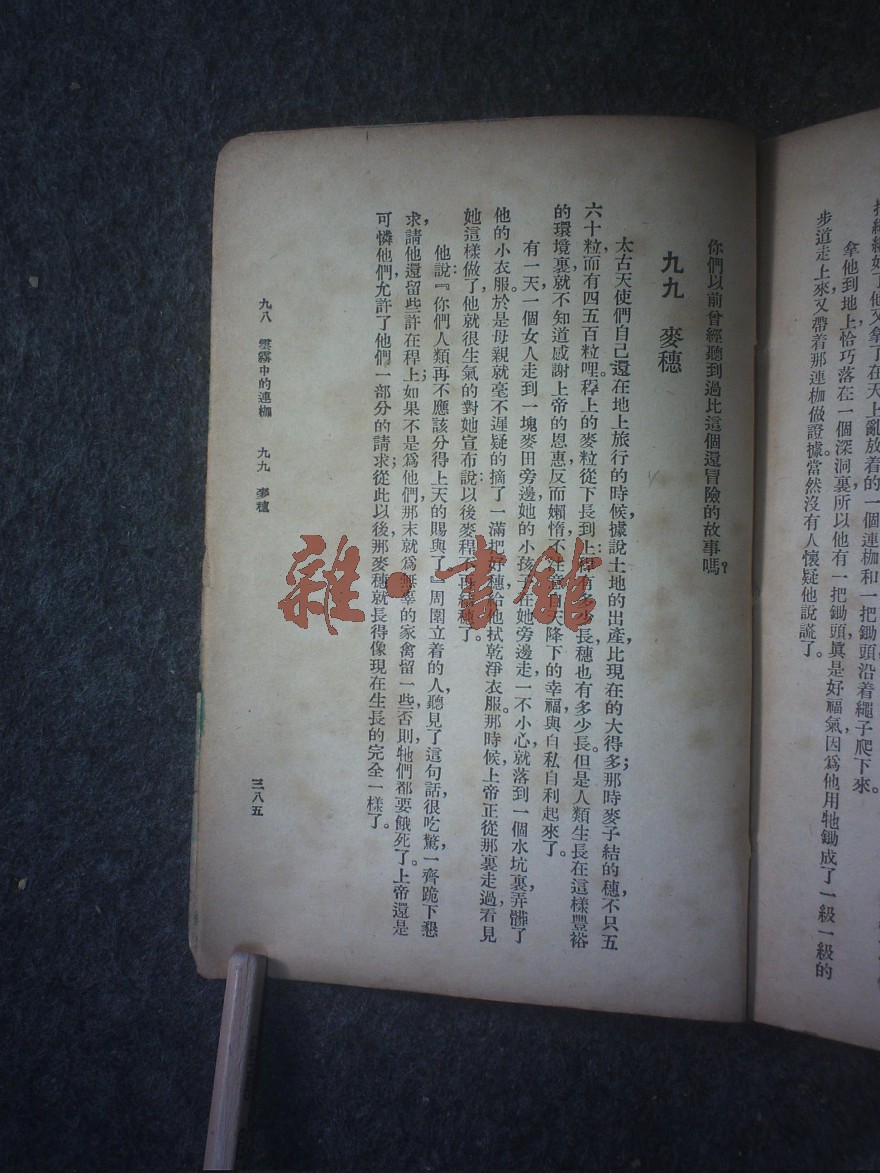 步道走上來,又帶着那連枷做證據,當然沒有人懷疑他說謊了。
拿他到地上,恰巧落在一個深洞裏,所以他有一把鋤頭,眞是好福氣,因爲他用牠鋤成了一級一級的
好了,他又拿了在天上亂放着的一個連枷和一把鋤頭,沿着繩子爬下來。
你們以前曾經聽到過比這個還冒險的故事嗎?
九九 麥穗
太古天使們自己還在地上旅行的時候,據說土地的出產,比現在的大得多;那時麥子結的穗不只五
六十粒,而有四五百粒哩。稃上的麥粒從下長到上,稈有多少長,穗也有多少長。但是人類生長在這樣豐裕
的環境裏,就不知道感謝上帝的恩惠,反而嬾惰,不注意自天降下的幸福,與自私自利起來了。
有一天,一個女人走到一塊麥田旁邊,她的小孩子在她旁邊走,一不小心,就落到一個水坑裏,弄髒了
他的小衣服。於是母親就毫不遲疑的摘了一滿把好穗給他拭乾淨衣服。那時候上帝正從那裏走過,看見
她這樣做了,他就很生氣的對她宣布說:以後麥稈不再穗了。
他說:『你們人類再不應該分得上天的賜與了。』周圍立着的人,聽見了這句話,很吃驚,一齊跪下懇
求,請他還留些許在稈上;如果不是爲他們,那末就爲無辜的家禽留一些,否則,牠們都要餓死了。上帝還是
可憐他們,允許了他們一部分的請求;從此以後,那麥穗就長得像現在生長的完全一樣了。
九八 雲霧中的連枷 九九 麥穗
三八五
雜·書館